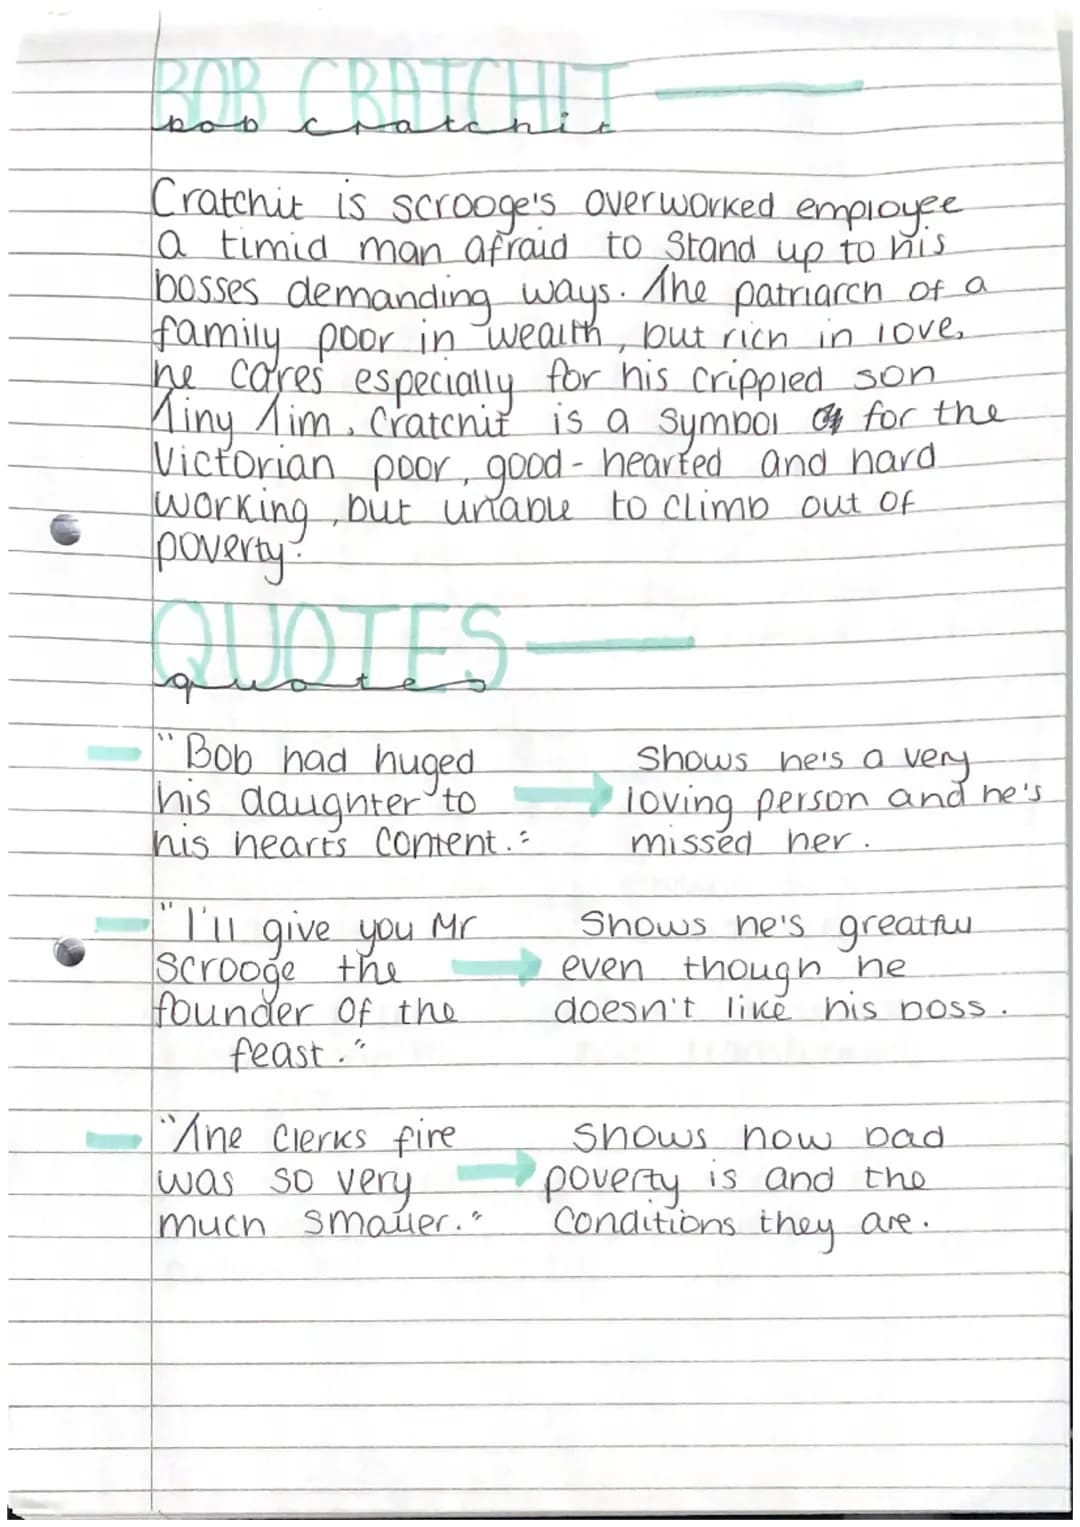 BOB CRATCHIT
bob cratchit
Cratchit is scrooge's overworked employee
a timid man afraid to stand up to his
bosses demanding ways. The patriarch of a
family poor in wealth, but rich in love,
he cares especially for his crippled son
Tiny Tim. Cratchit is a symbol for the
Victorian poor, good-hearted and hard
working, but unable to climb out of
poverty.
QUOTES
quotes
"Bob had huged
his daughter to
his hearts content."
Shows he's a very
loving person and he's
missed her.
"I'll give you Mr
Scrooge the
founder of the
feast."
Shows he's greatful
even though he
doesn't like his boss.
"The Clerks fire
was so very
much smaller."
Shows how bad
poverty is and the
conditions they are.